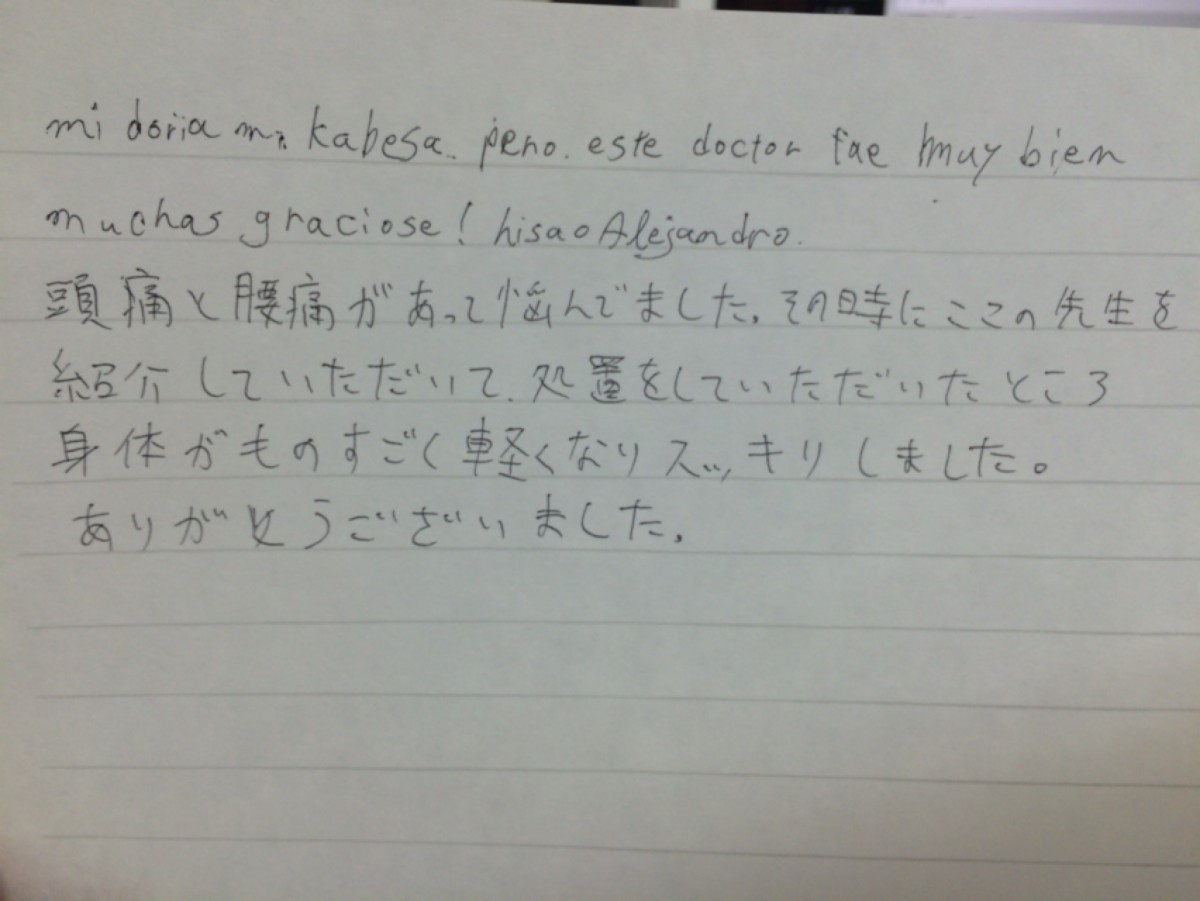 mi doria mi kabesa. pero. este doctor fue muy bien
muchas graciose! hisao Alejandro.
頭痛と腰痛があって悩んでました。その時にここの先生を
紹介していただいて、処置をしていただいたところ
身体がものすごく軽くなりスッキリしました。
ありがとうございました。